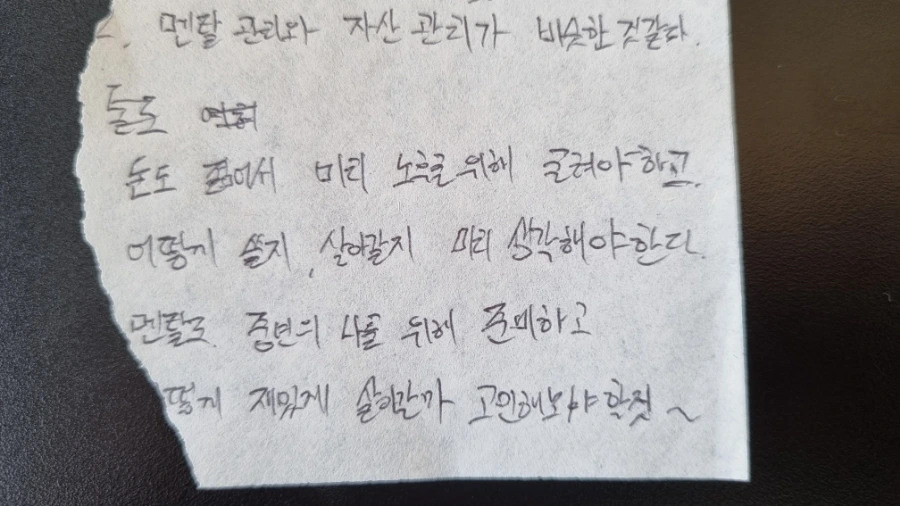 2. 멘탈 관리와 자산 관리가 비슷한 것 같다.
돈도
돈도 젊어서 미리 노후를 위해 굴려야 하고.
어떻게 쓸지, 살아갈지 미리 생각해야 한다.
멘탈도 중년의 나를 위해 준비하고
떻게 재밌게 살아갈까 고민해보아야 할 것 ~